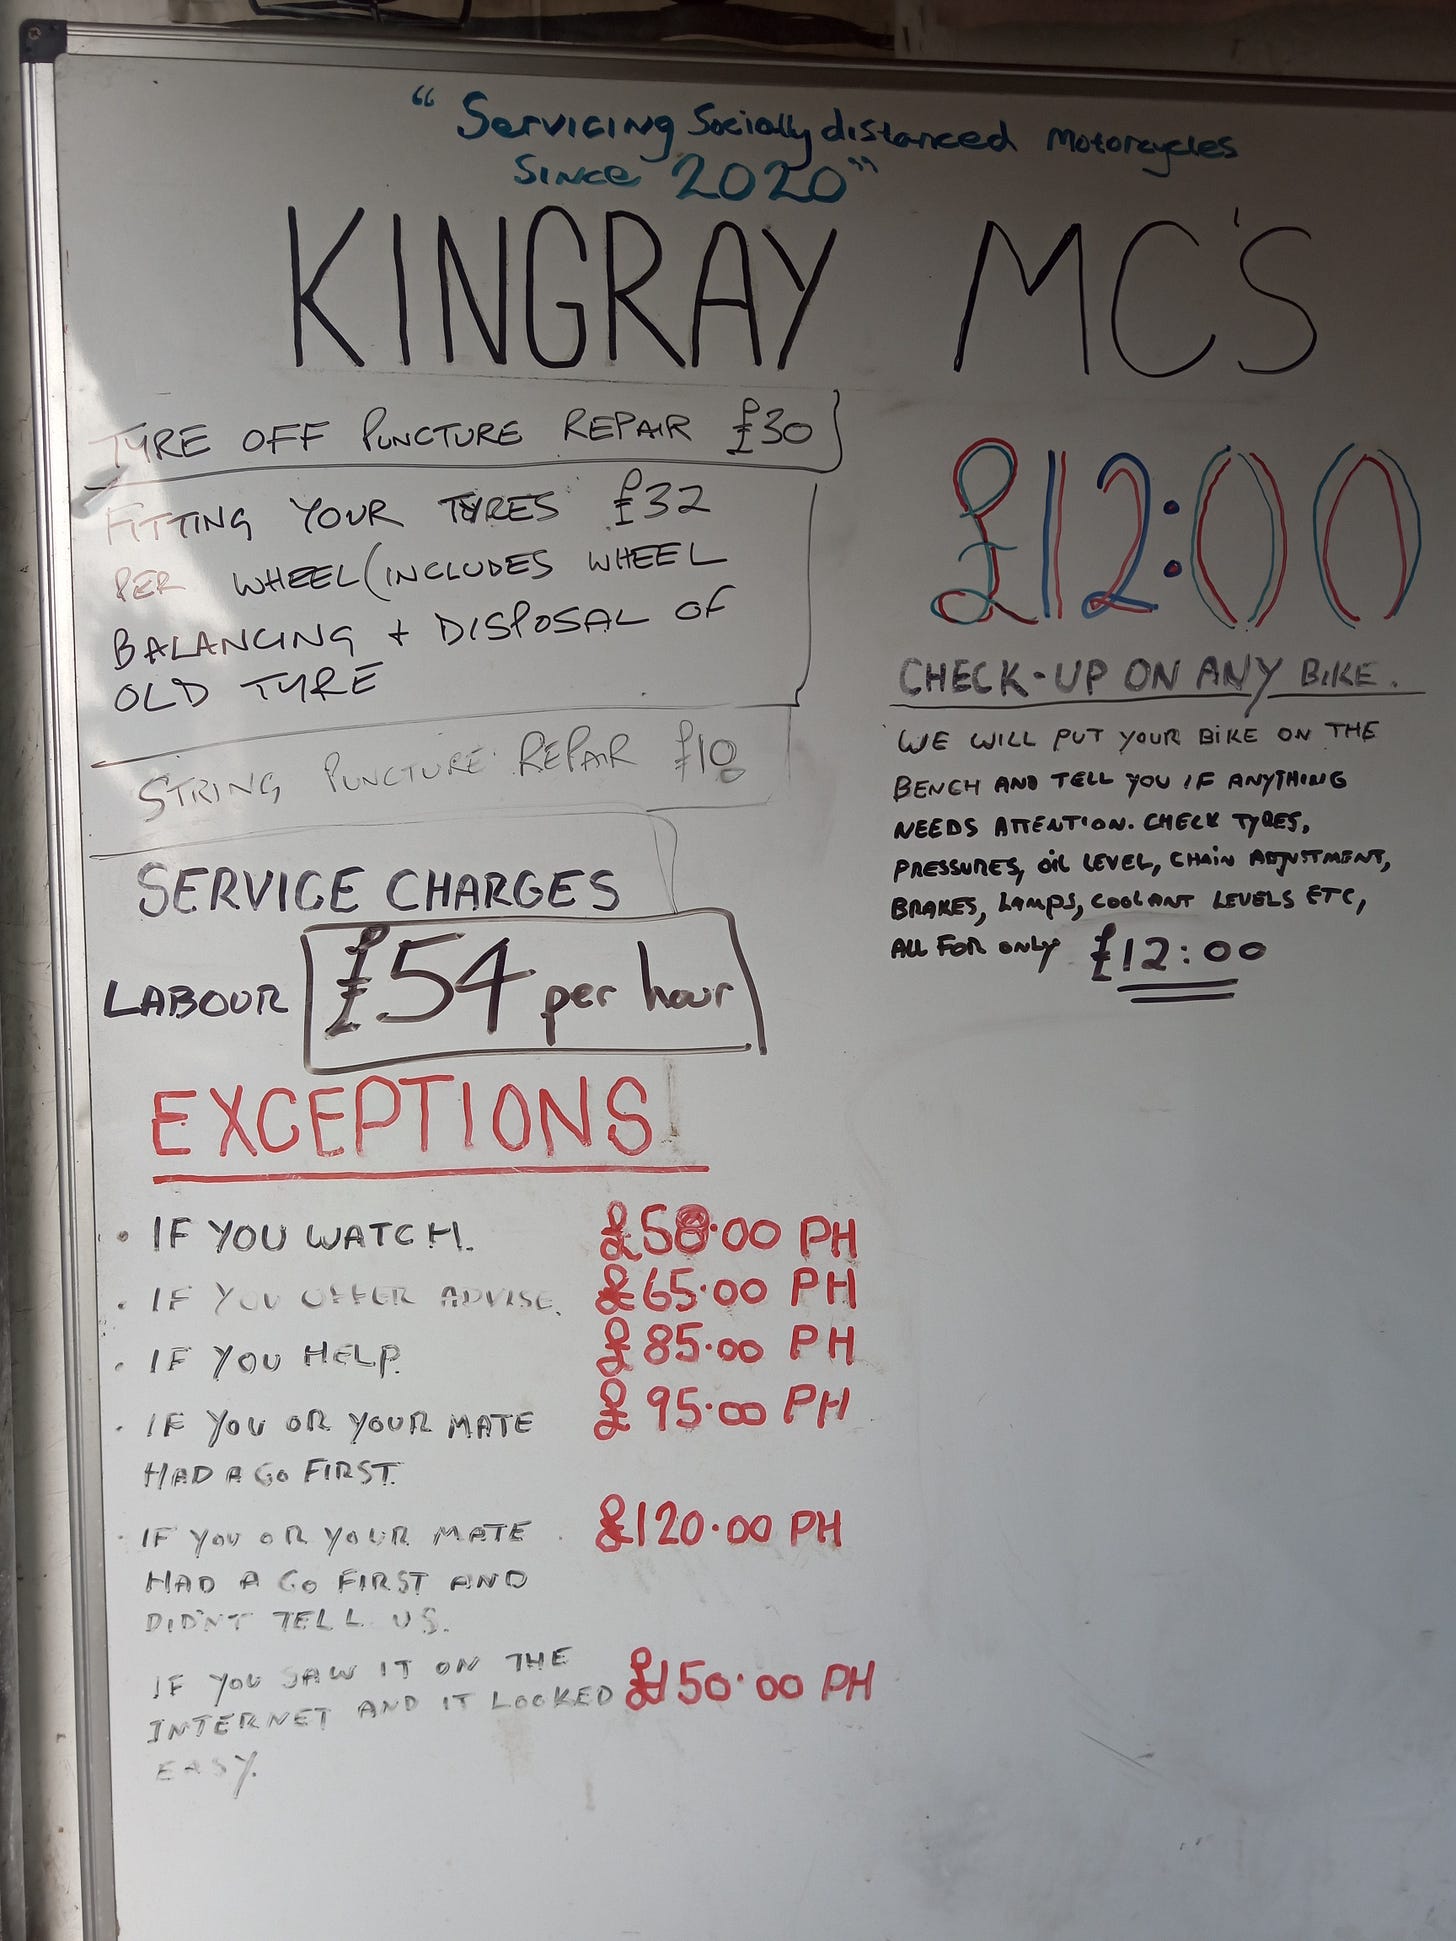 "Servicing Socially distanced Motorcycles
Since 2020"
KINGRAY MC'S
TYRE OFF PUNCTURE REPAIR £30
FITTING YOUR TYRES £32
PER WHEEL (INCLUDES WHEEL
BALANCING + DISPOSAL OF
OLD TYRE
STRING PUNCTURE REPAIR £10
SERVICE CHARGES
LABOUR £54 per hour
EXCEPTIONS
• IF YOU WATCH. £58.00 PH
• IF YOU OFFER ADVISE. £65.00 PH
• IF YOU HELP. £85.00 PH
• IF YOU OR YOUR MATE £95.00 PH
HAD A GO FIRST.
• IF YOU OR YOUR MATE £120.00 PH
HAD A GO FIRST AND
DIDN'T TELL US.
IF YOU SAW IT ON THE
INTERNET AND IT LOOKED £150.00 PH
EASY.
£12:00
CHECK-UP ON ANY BIKE.
WE WILL PUT YOUR BIKE ON THE
BENCH AND TELL YOU IF ANYTHING
NEEDS ATTENTION. CHECK TYRES,
PRESSURES, OIL LEVEL, CHAIN ADJUSTMENT,
BRAKES, LAMPS, COOLANT LEVELS ETC,
ALL FOR ONLY £12:00